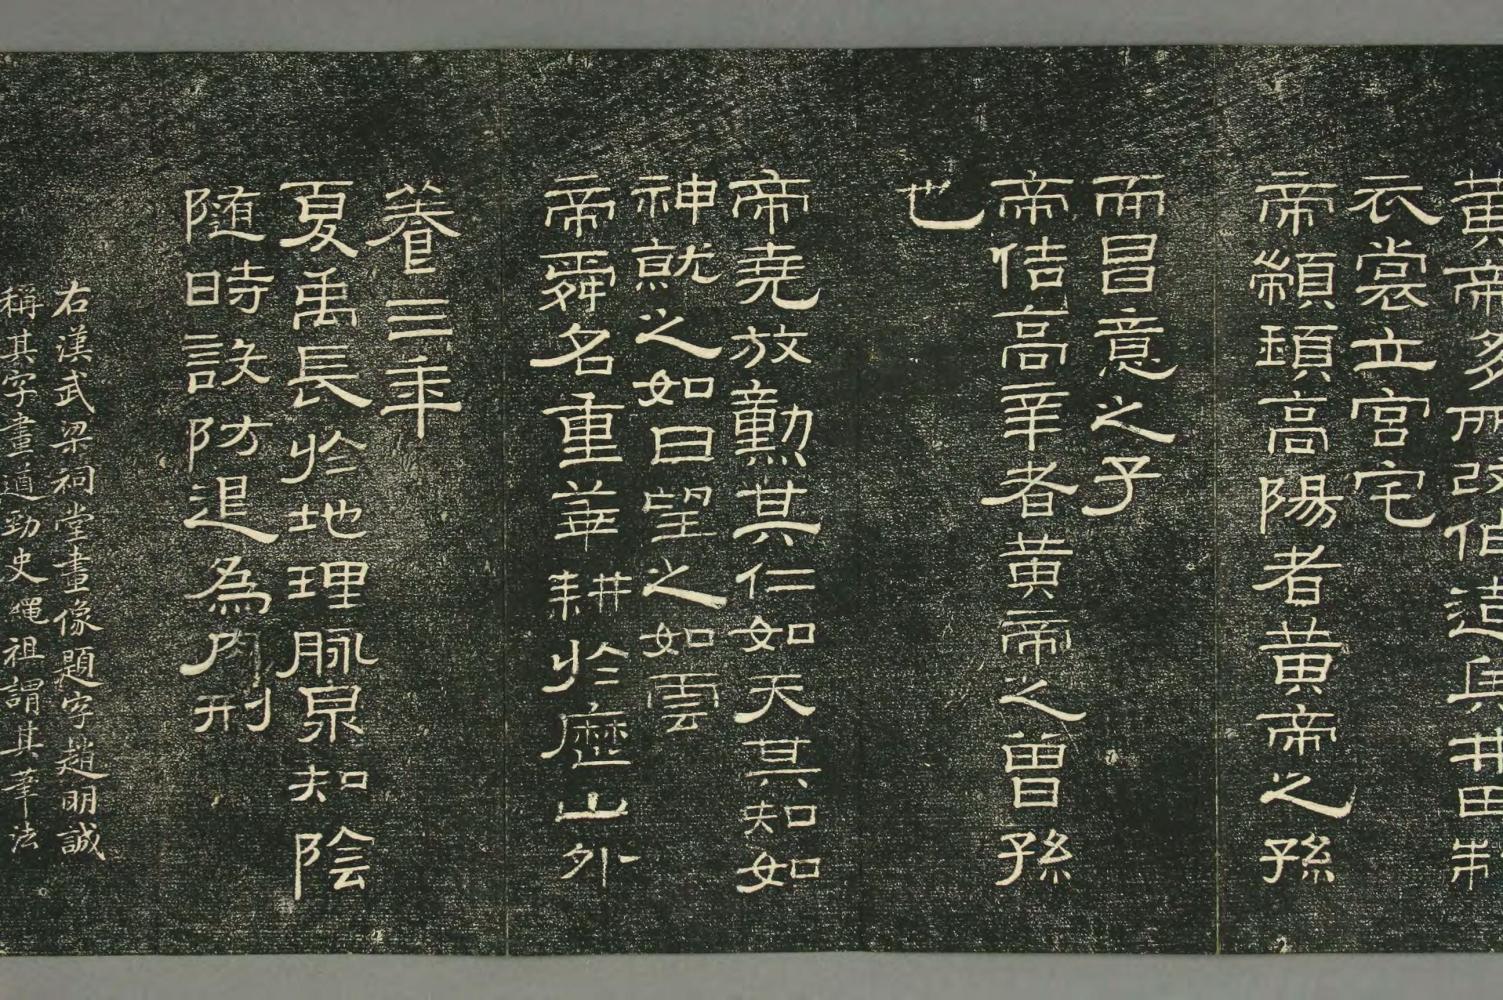 黄帝多所改伯造兵井田制
衣裳立宮宅
帝顓頊高陽者黄帝之孫
而昌意之子
帝俈高辛者黄帝之曽孫
也
帝堯放勳其仁如天其知如
神就之如日望之如雲
帝舜名重華耕於歷山外
養三年
夏禹長於地理脉泉知陰
随時設防退為肉刑
右漢武梁祠堂畫像題字趙明誠
稱其字畫遒勁史繩祖謂其筆法